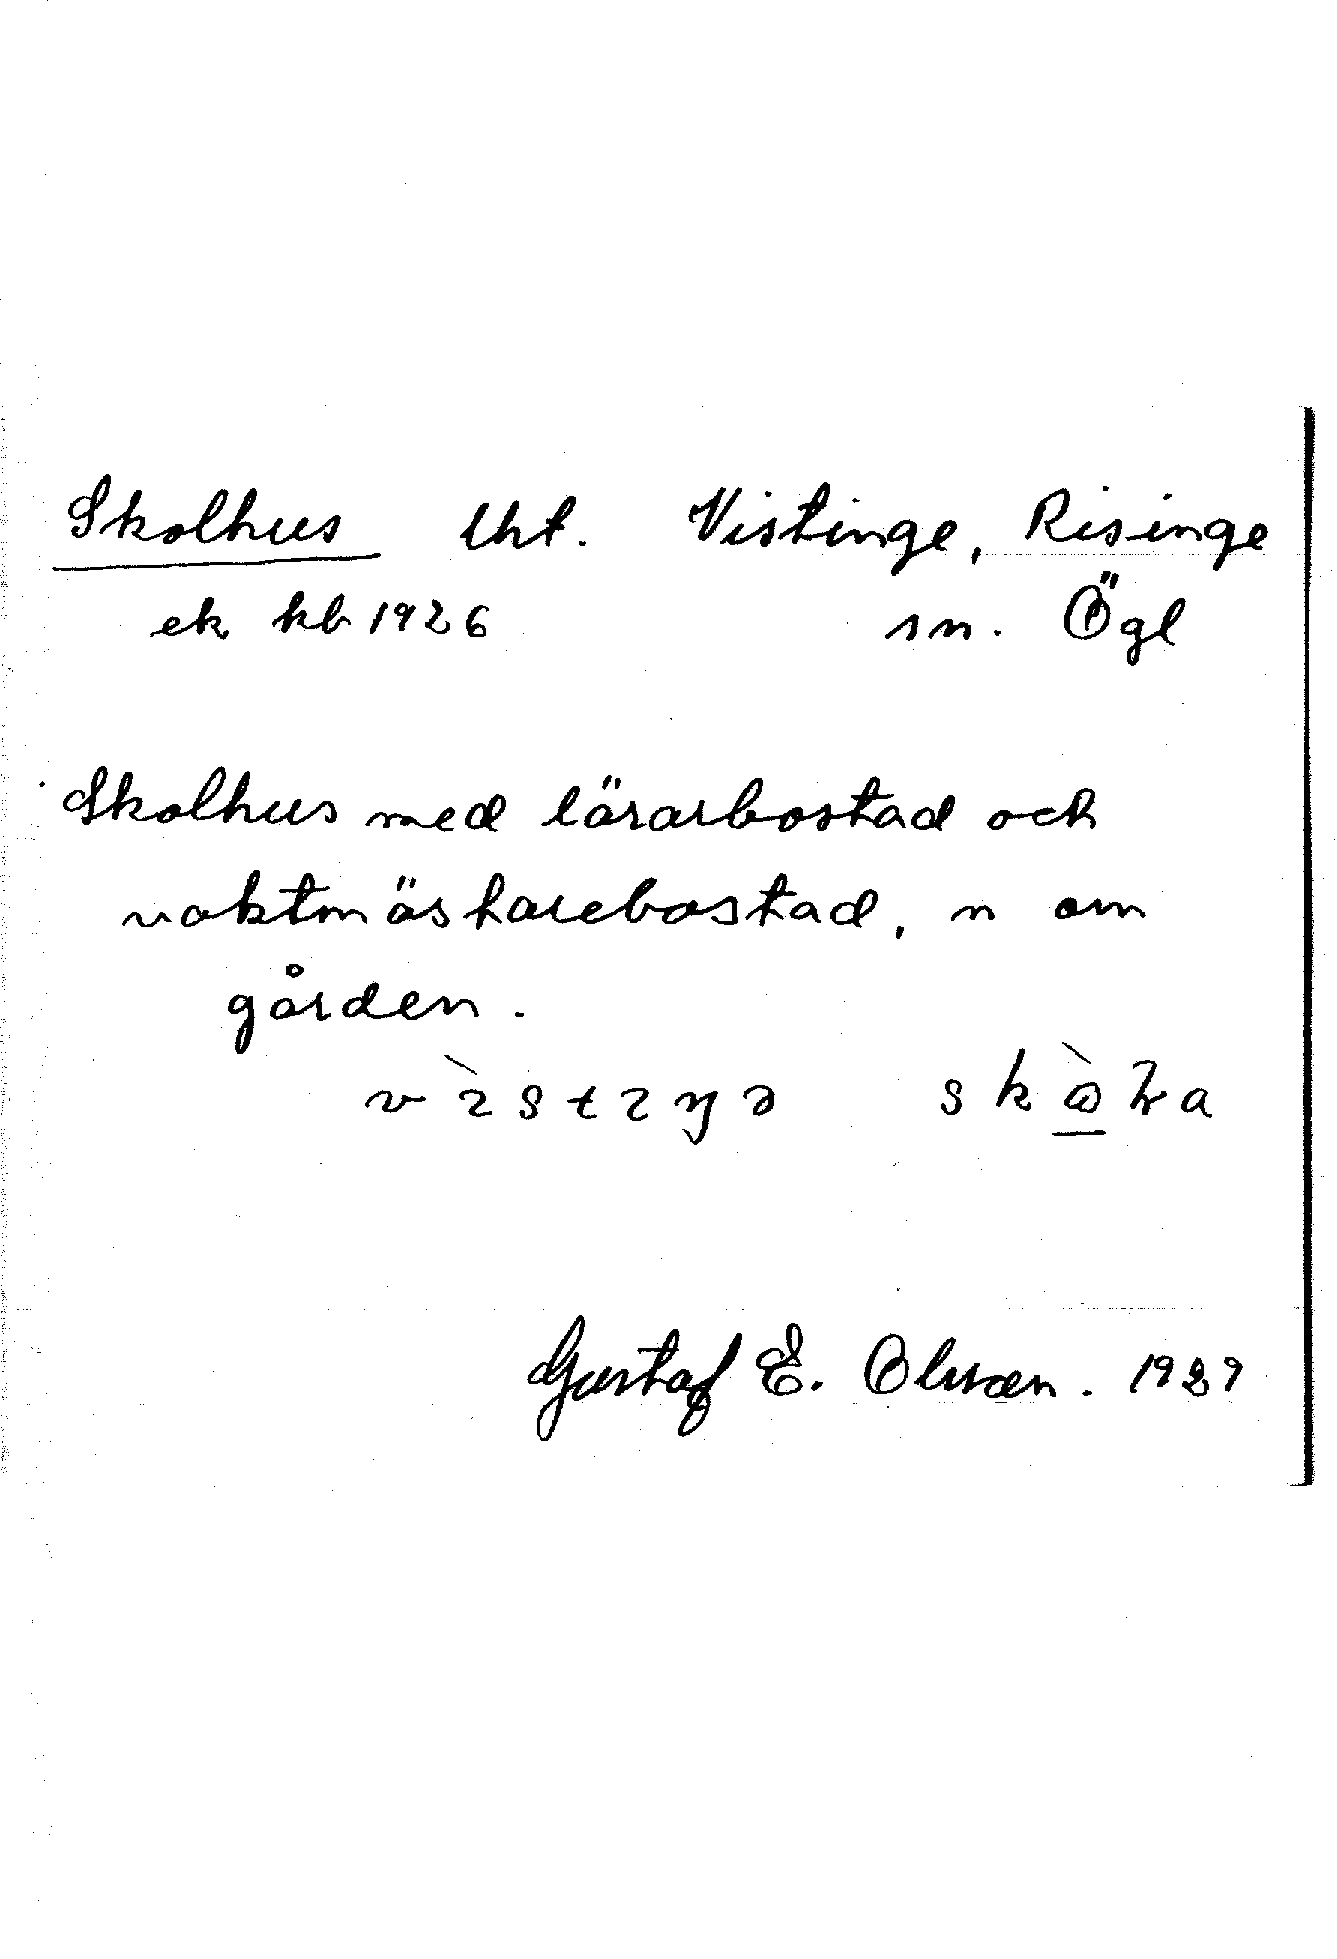 Skolhus lht. Vistinge, Risinge
ek kb 1926 sn. Ögl
Skolhus med lärarbostad och
vaktmästarebostad, n om
gården.
Gustaf E. Olsson. 1929